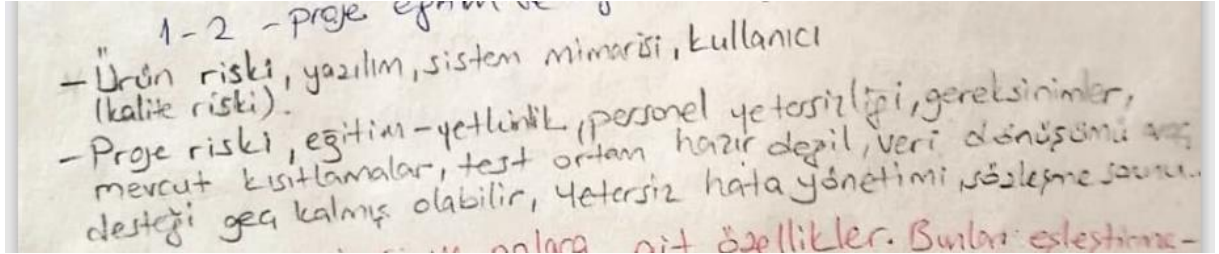 1-2 - proje
- Ürün riski, yazılım, sistem mimarisi, kullanıcı
(kalite riski).
- Proje riski, eğitim-yetkinlik, personel yetersizliği, gereksinimler,
mevcut kısıtlamalar, test ortam hazır değil, veri dönüşümü araç
desteği geç kalmış olabilir, yetersiz hata yönetimi, sözleşme
ait özellikler. Bunları eşleştirme-